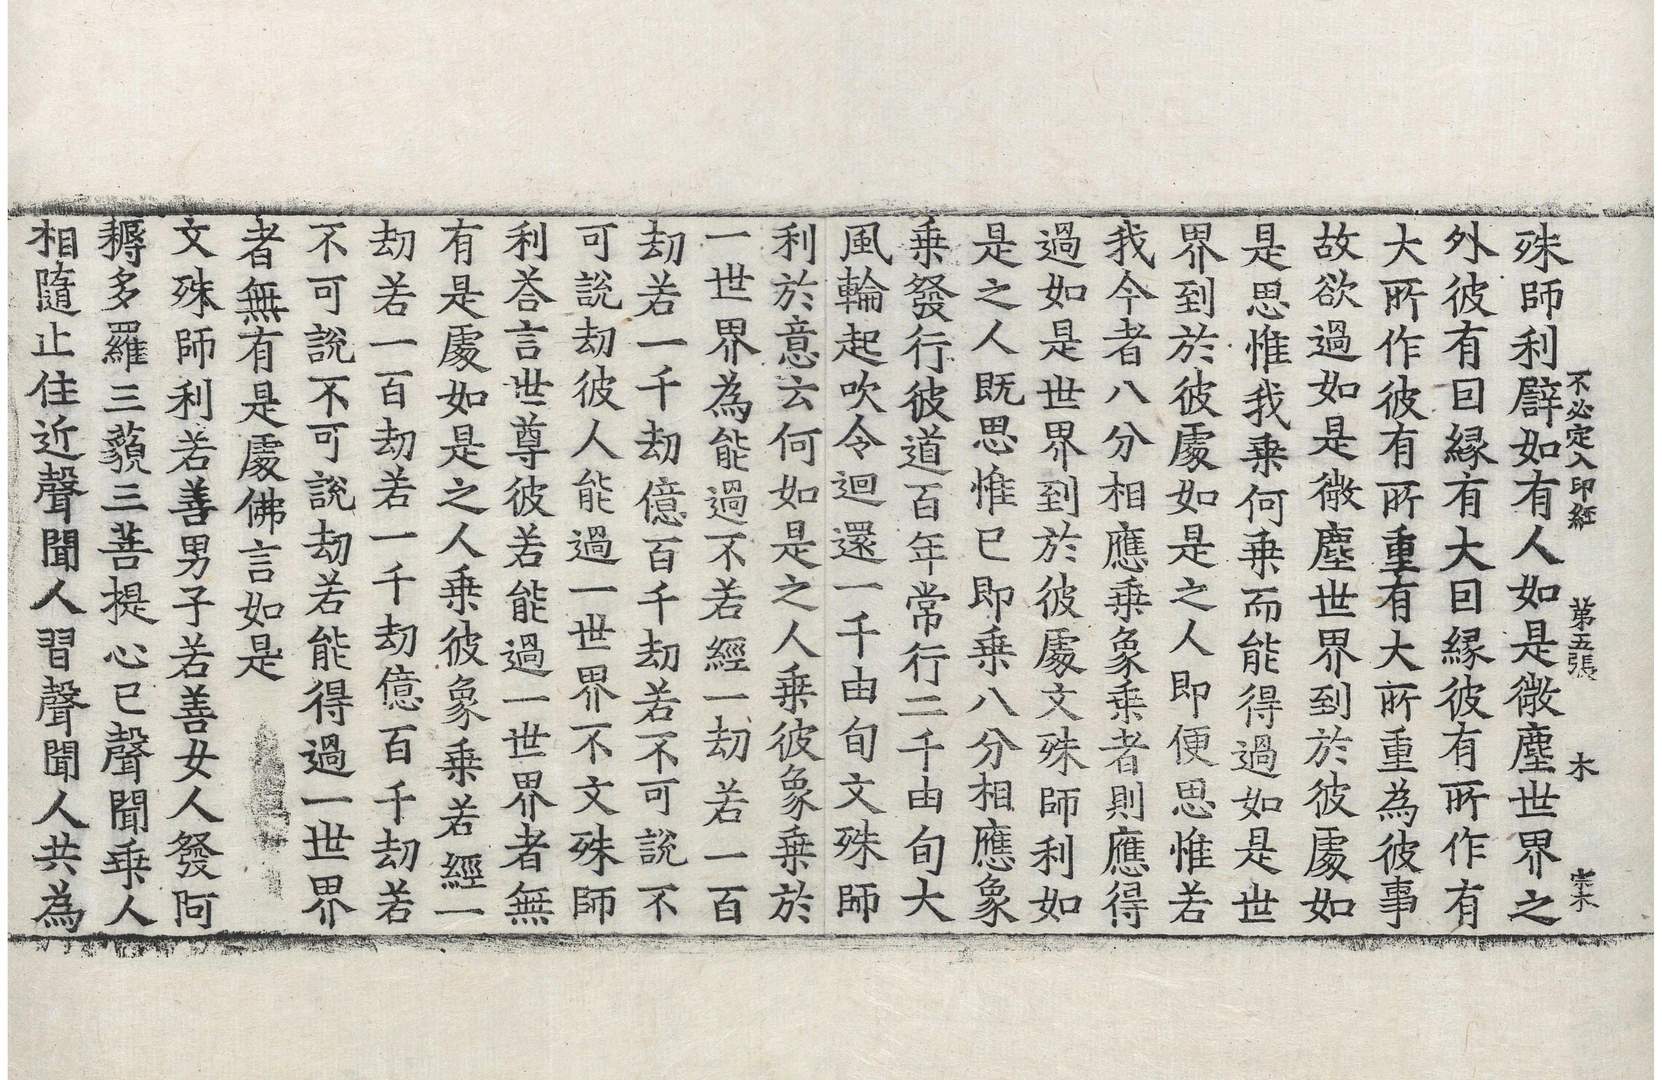 不必定入印經 第五張 木 宗木
殊師利譬如有人如是微塵世界之
外彼有囙緣有大囙緣彼有所作有
大所作彼有所重有大所重為彼事
故欲過如是微塵世界到於彼處如
是思惟我乘何乘而能得過如是世
界到於彼處如是之人即便思惟若
我今者八分相應乘象乘者則應得
過如是世界到於彼處文殊師利如
是之人既思惟已即乘八分相應象
乘發行彼道百年常行二千由旬大
風輪起吹令迴還一千由旬文殊師
利於意云何如是之人乘彼象乘於
一世界為能過不若經一劫若一百
劫若一千劫億百千劫若不可說不
可說劫彼人能過一世界不文殊師
利荅言世尊彼若能過一世界者無
有是處如是之人乘彼象乘若經一
劫若一百劫若一千劫億百千劫若
不可說不可說劫若能得過一世界
者無有是處佛言如是
文殊師利若善男子若善女人發阿
耨多羅三藐三菩提心已聲聞乘人
相隨止住近聲聞人習聲聞人共為